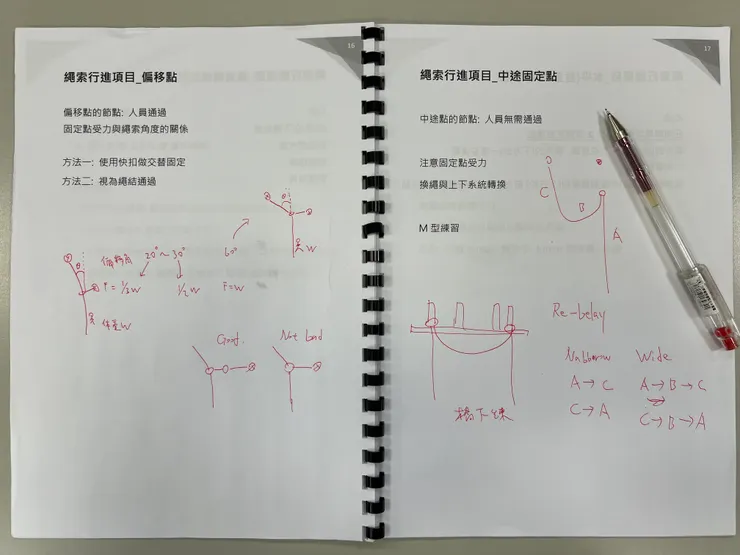 16
繩索行進項目_偏移點
偏移點的節點: 人員通過
固定點受力與繩索角度的關係
方法一: 使用快扣做交替固定
方法二: 視為繩結通過
θ
W
θ
偏移角 20° ~ 30° 60°
F = 1/3W 1/2W F=W
體重W
Good. Not bad
17
繩索行進項目_中途固定點
中途點的節點: 人員無需通過
注意固定點受力
換繩與上下系統轉換
M 型練習
C
B
A
Re-belay
Wide
A→C A→B→C
C→A C→B→A
橋下練